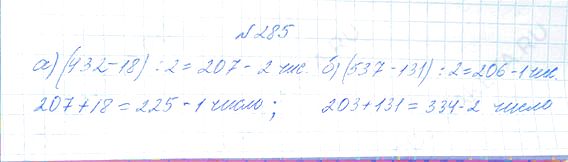 №285
а) (432-18) : 2 = 207 - 2 чис. б) (537 - 131) : 2 = 206 - 1 чис.
207 + 18 = 225 - 1 число; 203 + 131 = 334 - 2 число